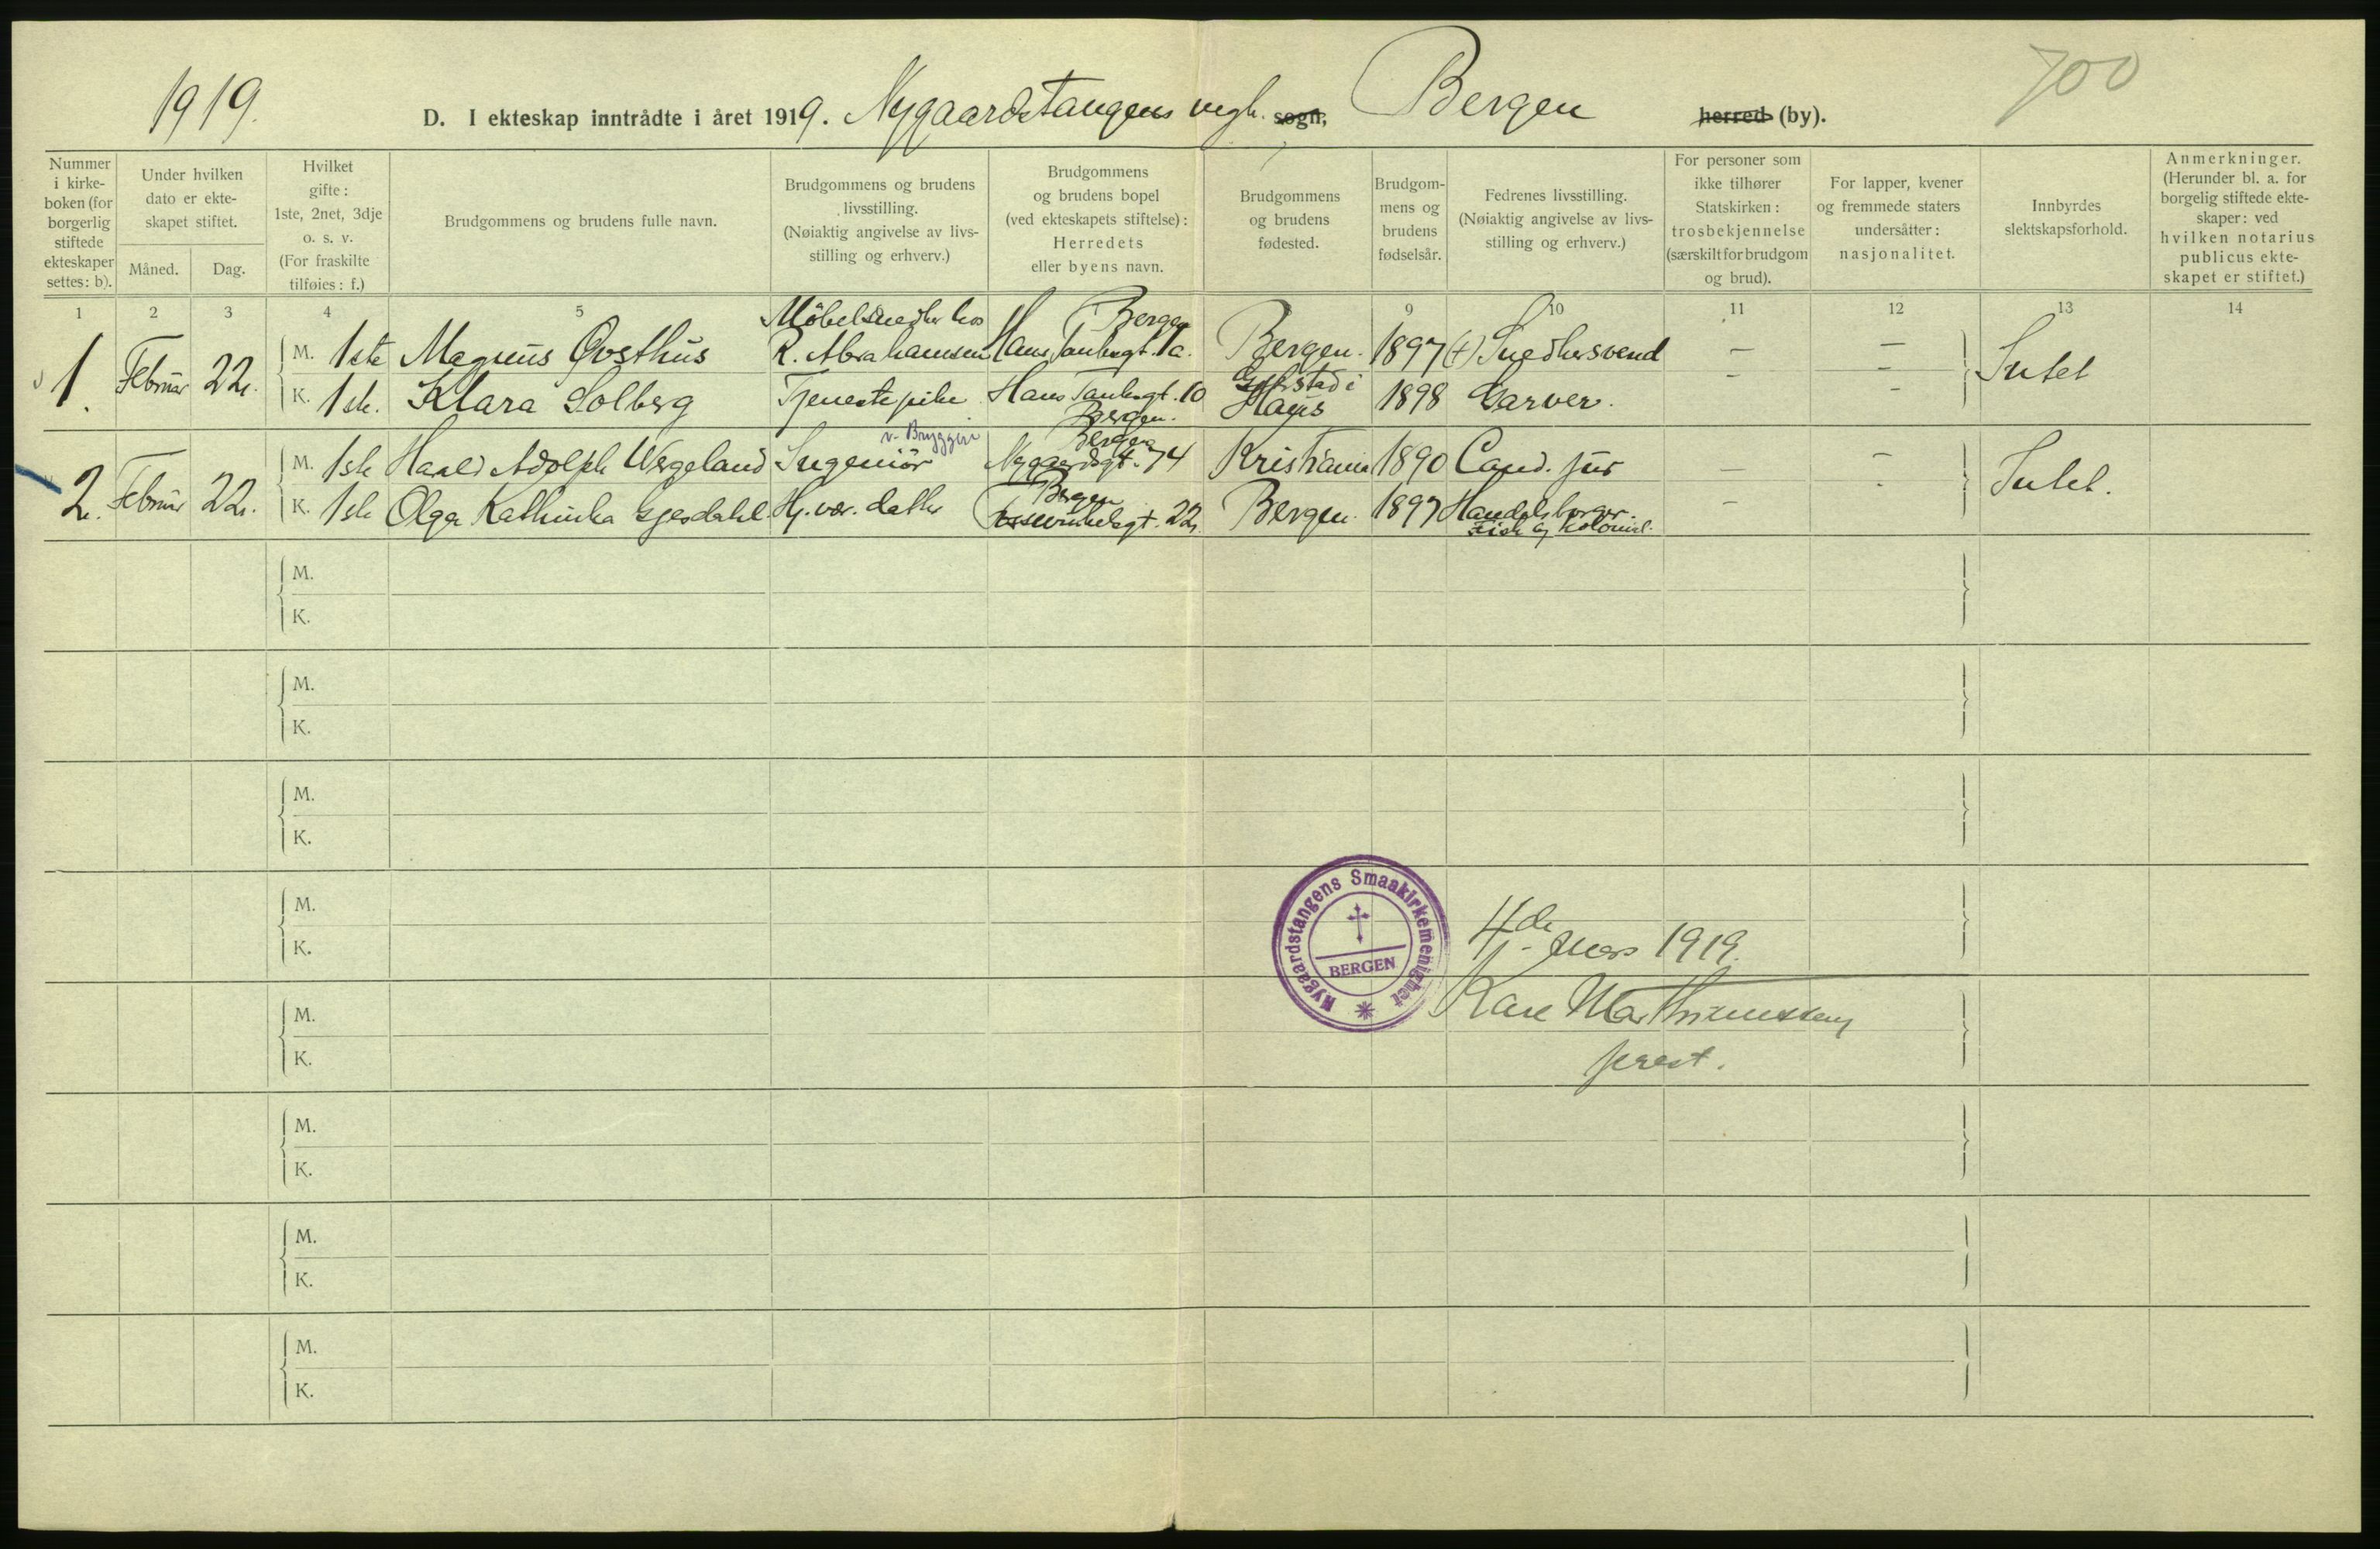 1919.
700
D. I ekteskap inntrådte i året 1919. Nygaardstangens sogn, Bergen herred (by).
Nummer i kirke-boken (for borgerlig stiftede ekteskaper settes: b).
Under hvilken dato er ekte-skapet stiftet.
Måned.
Dag.
Hvilket gifte: 1ste, 2net, 3dje o. s. v. (For fraskilte tilføies: f.)
Brudgommens og brudens fulle navn.
Brudgommens og brudens livsstilling. (Nøiaktig angivelse av livs-stilling og erhverv.)
Brudgommens og brudens bopel (ved ekteskapets stiftelse): Herredets eller byens navn.
Brudgommens og brudens fødested.
Brudgom-mens og brudens fødselsår.
Fedrenes livsstilling. (Nøiaktig angivelse av livs-stilling og erhverv.)
For personer som ikke tilhører Statskirken: trosbekjennelse (særskilt for brudgom og brud).
For lapper, kvener og fremmede staters undersåtter: nasjonalitet.
Innbyrdes slektskapsforhold.
Anmerkninger. (Herunder bl. a. for borgelig stiftede ekte-skaper: ved hvilken notarius publicus ekte-skapet er stiftet.)
1 2 3 4 5 9 10 11 12 13 14
1. Februar 22. M. 1ste Magnus Øvsthus Möbelsnedker hos R. Abrahamsen Hans Tanksgt. 1a. Bergen Bergen. 1897 (+) Snedkersvend — — Intet
K. 1ste. Klara Solberg Tjenestepike Hans Tanksgt. 10 Bergen. Haus 1898 Garver. - -
2. Februar 22. M. 1ste Harald Adolph Wergeland Ingeniör v. Bryggeri Bergen Nygaardsgt. 74 Kristiania 1890 Cand. jur — - Intet.
K. 1ste Olga Kathinka Gjesdahl. Hj. vær. datter Bergen 22. Bergen. 1897 Handelsborger. Fisk og kolonial. - -
M.
K.
M.
K.
M.
K.
M.
K.
M.
K.
M.
K.
M.
K.
M.
K.
Nygaardstangens Smaakirkemenighet
BERGEN
4de Mars 1919.
Kare Marthinussen
prest.